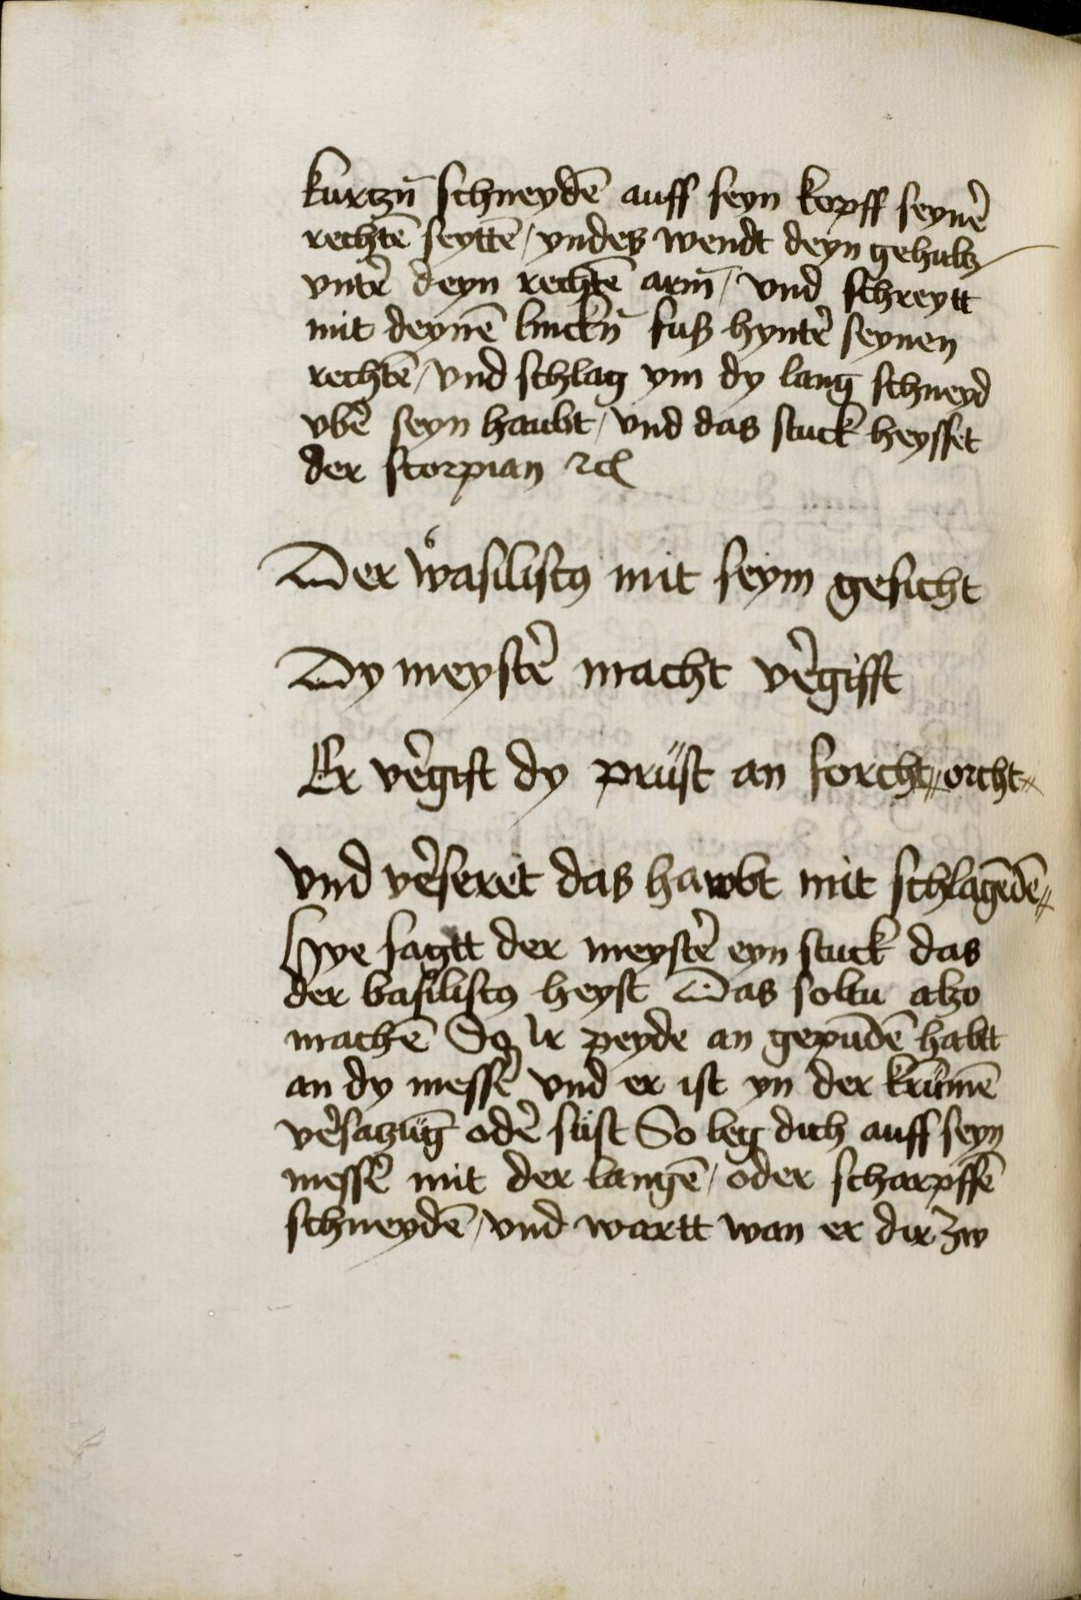 kurtzn̄ schneydē auff seyn kopff seyn̄e
rechtē seyttē / yndes wendt deyn gehultz
vnter̄ deyn rechtē arm̄ / vnd schreytt
mit deynē linckn̄ fuß hynter̄ seynen
rechtē / vnd schlag ym dy lang schneyd
vbē seyn haubt / vnd das stuck heysset
der scorpian ꝛc
Der wͦasiliscꝯ mit seym gesicht
Dy meystē macht vēgifft
Er vēgift dy prüst an forcht // orcht //
vnd vēseret das hawbt mit schlagēdē //
Hye sagtt der meystē eyn stuck das
der basiliscꝯ heyst Das soltu alzo
machē So Ir peyde an gepūdē habtt
an dy messē vnd er ist yn der krūmē
vēsatzūg odē süst So leg dich auff seyn
messē mit der langē / oder scharpffē
schneydē / vnd wartt wan er dir zw